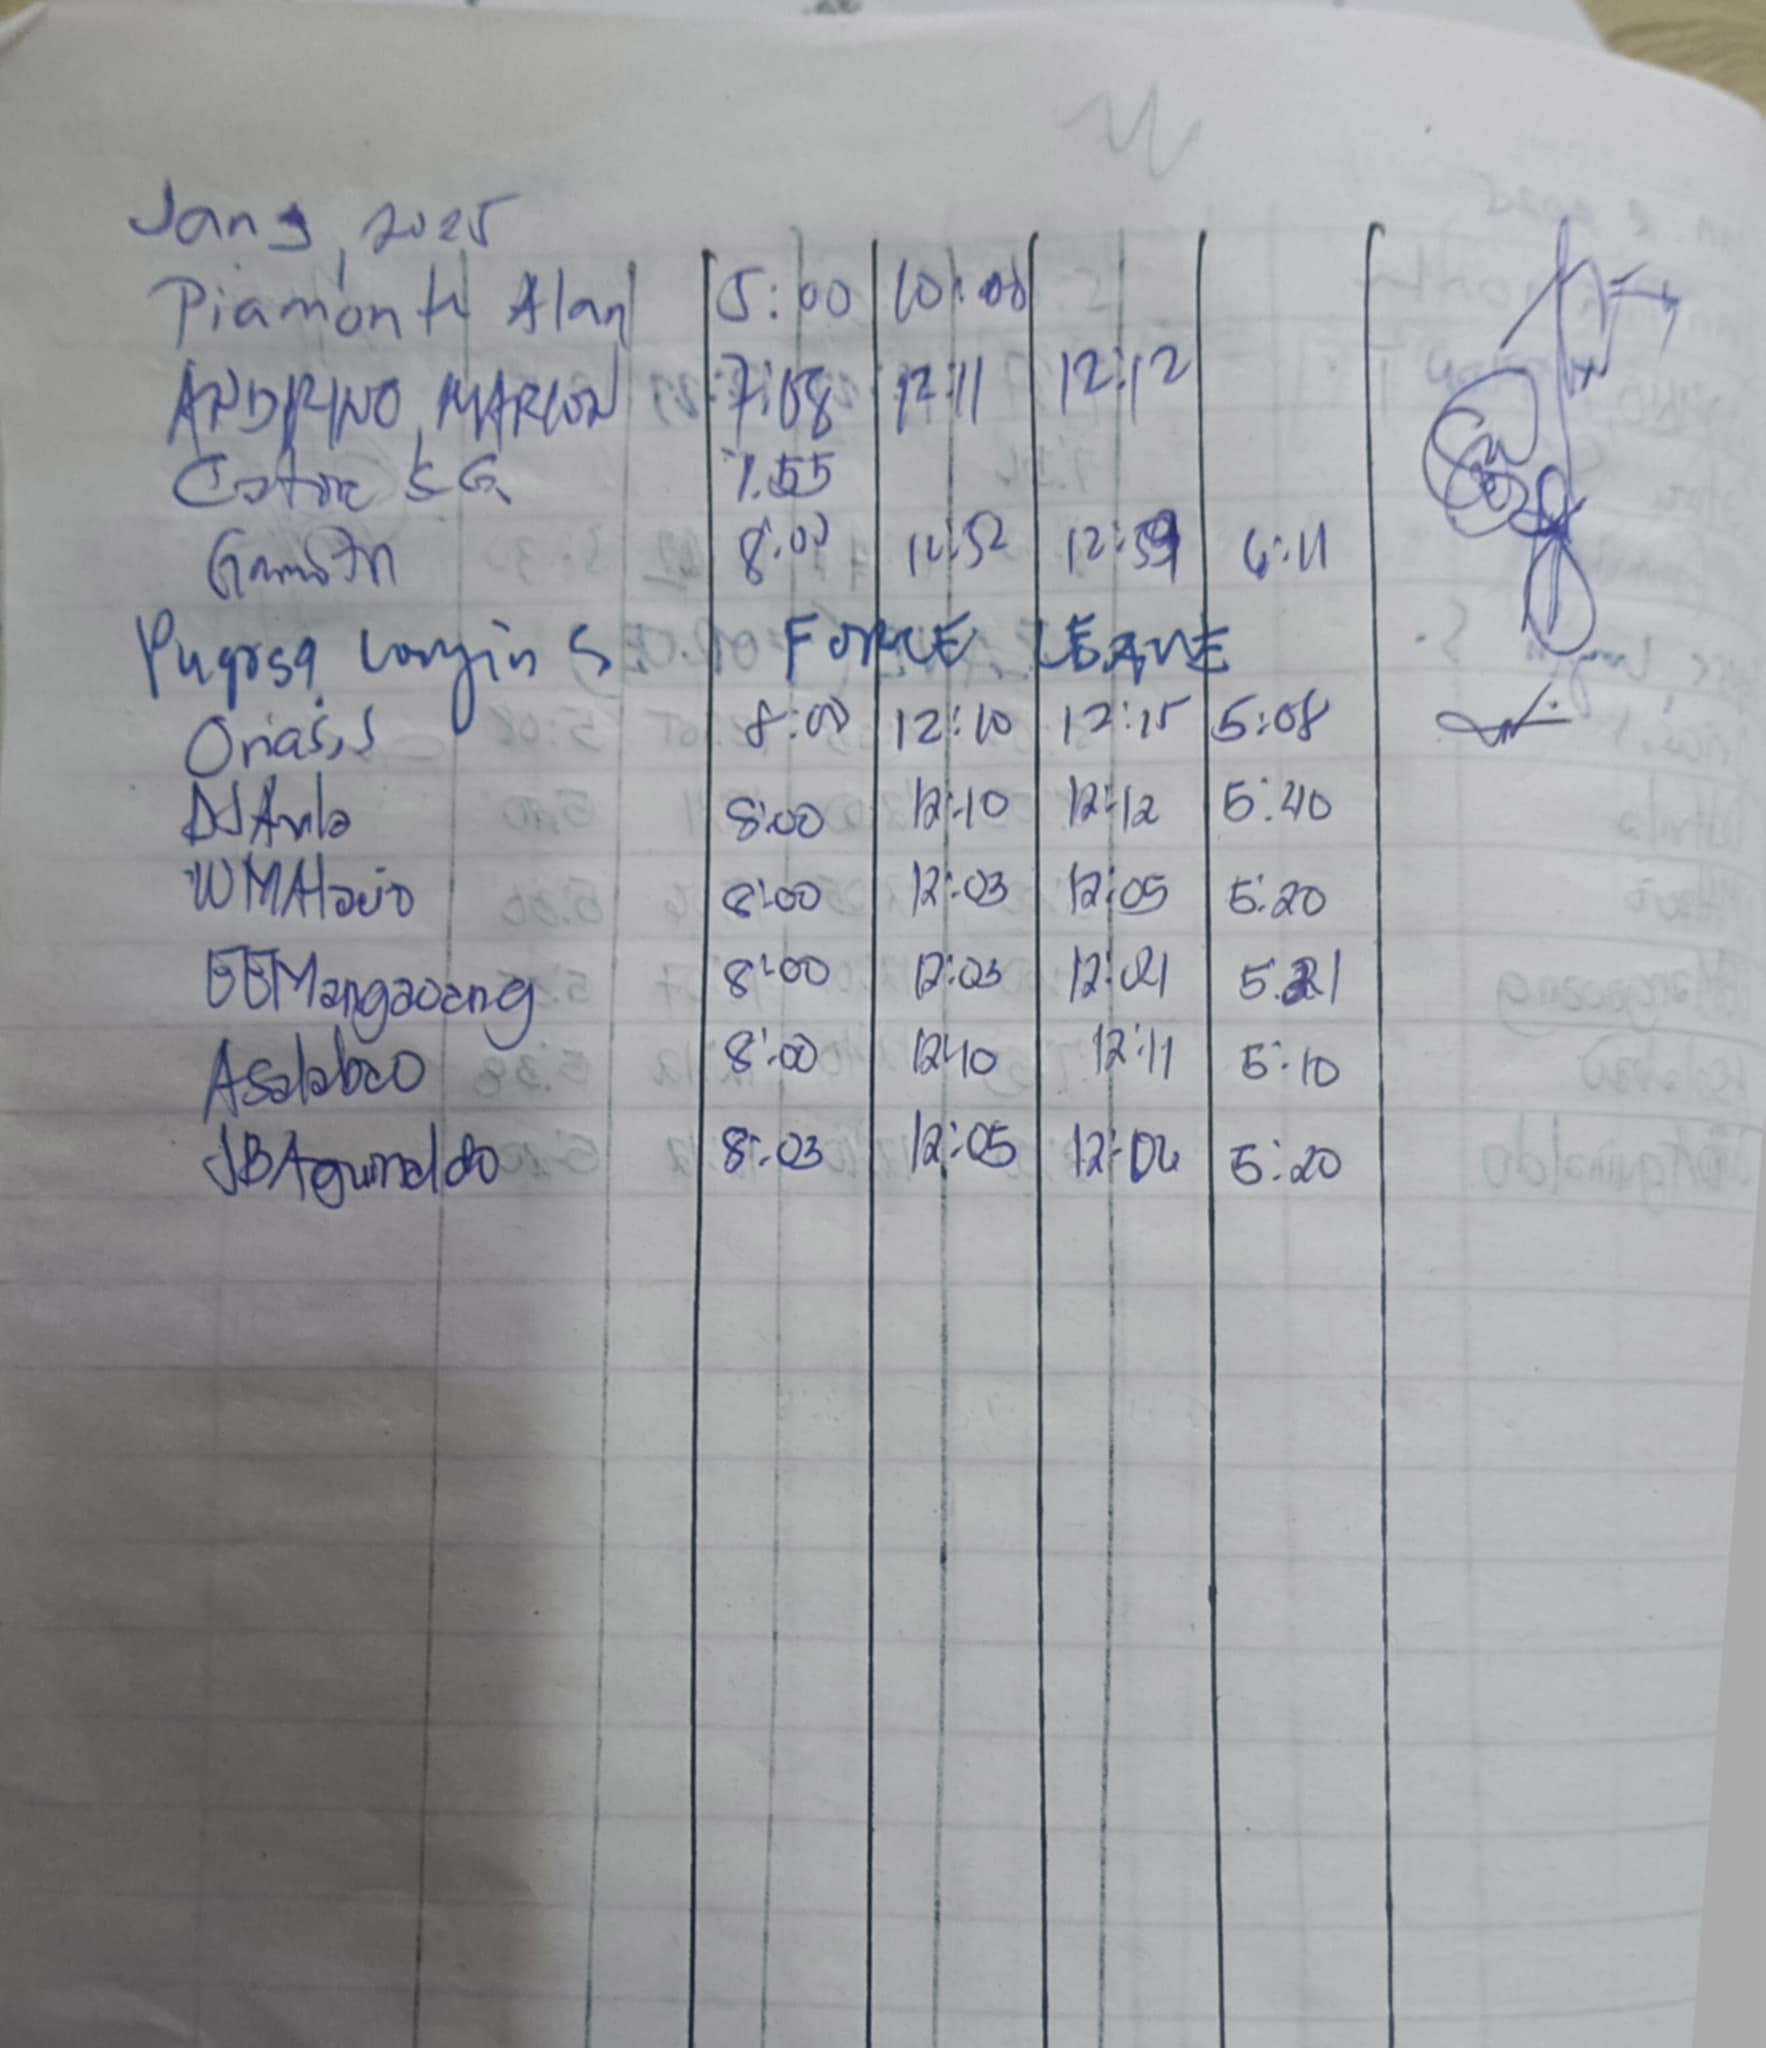 Jan 3, 2025
Piamonte Alan 5:00 10:00
ANDRINO, MARLON 7:08 12:11 12:12
S.G. 7.55
8:00 12:52 12:59 6:11
Longin S FORCE LEAVE
Orias, S 8:00 12:10 12:15 5:08
DJAvila 8:00 12:10 12:12 5:40
WMAlavio 8:00 12:03 12:05 5:20
EEMangaoang 8:00 12:03 12:21 5:21
Asalabao 8:00 12:10 12:11 5:10
JBAguinaldo 8:03 12:05 12:06 5:20